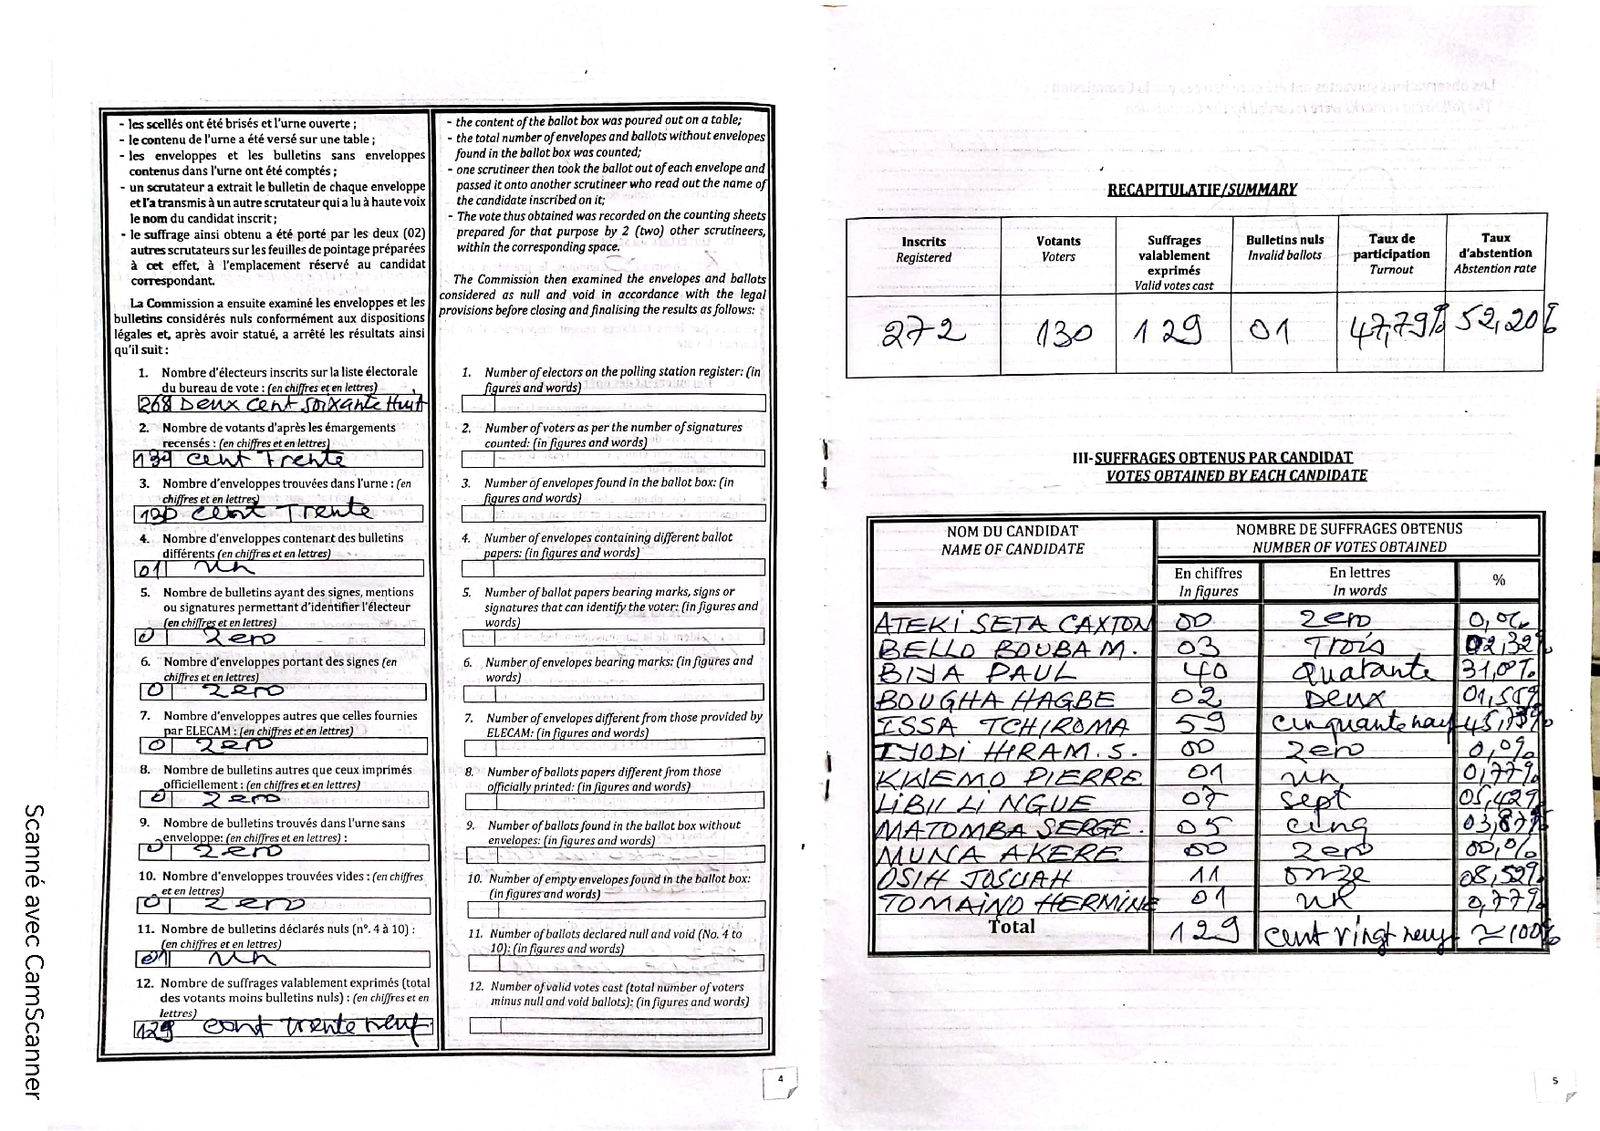 - les scellés ont été brisés et l'urne ouverte ;
- le contenu de l'urne a été versé sur une table ;
- les enveloppes et les bulletins sans enveloppes
contenus dans l'urne ont été comptés ;
- un scrutateur a extrait le bulletin de chaque enveloppe
et l'a transmis à un autre scrutateur qui a lu à haute voix
le nom du candidat inscrit ;
- le suffrage ainsi obtenu a été porté par les deux (02)
autres scrutateurs sur les feuilles de pointage préparées
à cet effet, à l'emplacement réservé au candidat
correspondant.
La Commission a ensuite examiné les enveloppes et les
bulletins considérés nuls conformément aux dispositions
légales et, après avoir statué, a arrêté les résultats ainsi
qu'il suit :
1. Nombre d'électeurs inscrits sur la liste électorale
du bureau de vote : (en chiffres et en lettres)
268 Deux cent soixante Huit
2. Nombre de votants d'après les émargements
recensés : (en chiffres et en lettres)
130 cent Trente
3. Nombre d'enveloppes trouvées dans l'urne : (en
chiffres et en lettres)
130 cent Trente
4. Nombre d'enveloppes contenant des bulletins
différents (en chiffres et en lettres)
01 un
5. Nombre de bulletins ayant des signes, mentions
ou signatures permettant d'identifier l'électeur
(en chiffres et en lettres)
0 zero
6. Nombre d'enveloppes portant des signes (en
chiffres et en lettres)
0 zero
7. Nombre d'enveloppes autres que celles fournies
par ELECAM : (en chiffres et en lettres)
0 zero
8. Nombre de bulletins autres que ceux imprimés
officiellement : (en chiffres et en lettres)
0 zero
9. Nombre de bulletins trouvés dans l'urne sans
enveloppe: (en chiffres et en lettres) :
0 zero
10. Nombre d'enveloppes trouvées vides : (en chiffres
et en lettres)
0 zero
11. Nombre de bulletins déclarés nuls (n°. 4 à 10) :
(en chiffres et en lettres)
01 un
12. Nombre de suffrages valablement exprimés (total
des votants moins bulletins nuls) : (en chiffres et en
lettres)
129 cent trente neuf
- the content of the ballot box was poured out on a table;
- the total number of envelopes and ballots without envelopes
found in the ballot box was counted;
- one scrutineer then took the ballot out of each envelope and
passed it onto another scrutineer who read out the name of
the candidate inscribed on it;
- The vote thus obtained was recorded on the counting sheets
prepared for that purpose by 2 (two) other scrutineers,
within the corresponding space.
The Commission then examined the envelopes and ballots
considered as null and void in accordance with the legal
provisions before closing and finalising the results as follows:
1. Number of electors on the polling station register: (in
figures and words)
2. Number of voters as per the number of signatures
counted: (in figures and words)
3. Number of envelopes found in the ballot box: (in
figures and words)
4. Number of envelopes containing different ballot
papers: (in figures and words)
5. Number of ballot papers bearing marks, signs or
signatures that can identify the voter: (in figures and
words)
6. Number of envelopes bearing marks: (in figures and
words)
7. Number of envelopes different from those provided by
ELECAM: (in figures and words)
8. Number of ballots papers different from those
officially printed: (in figures and words)
9. Number of ballots found in the ballot box without
envelopes: (in figures and words)
10. Number of empty envelopes found in the ballot box:
(in figures and words)
11. Number of ballots declared null and void (No. 4 to
10): (in figures and words)
12. Number of valid votes cast (total number of voters
minus null and void ballots): (in figures and words)
4
Scanné avec CamScanner
RECAPITULATIF/SUMMARY
Inscrits Registered
Votants Voters
Suffrages valablement exprimés Valid votes cast
Bulletins nuls Invalid ballots
Taux de participation Turnout
Taux d'abstention Abstention rate
272 130 129 01 47,79% 52,20%
III-SUFFRAGES OBTENUS PAR CANDIDAT
VOTES OBTAINED BY EACH CANDIDATE
NOM DU CANDIDAT NOMBRE DE SUFFRAGES OBTENUS
NAME OF CANDIDATE NUMBER OF VOTES OBTAINED
En chiffres En lettres %
In figures In words
ATEKI SETA CAXTON 00 zero 0,0%
BELLO BOUBA M. 03 Trois 02,32%
BIYA PAUL 40 Quarante 31,0%
BOUGHA HAGBE 02 Deux 01,55%
ISSA TCHIROMA 59 cinquante neuf 45,73%
IYODI HIRAM.S. 00 zero 0,0%
KWEMO PIERRE 01 un 0,77%
LIBII LI NGUE 07 sept 05,42%
MATOMBA SERGE. 05 cinq 03,87%
MUNA AKERE 00 zero 00,%
OSIH JOSUAH 11 onze 08,52%
TOMAINO HERMINE 01 un 0,77%
Total 129 cent vingt neuf ≃100%
5